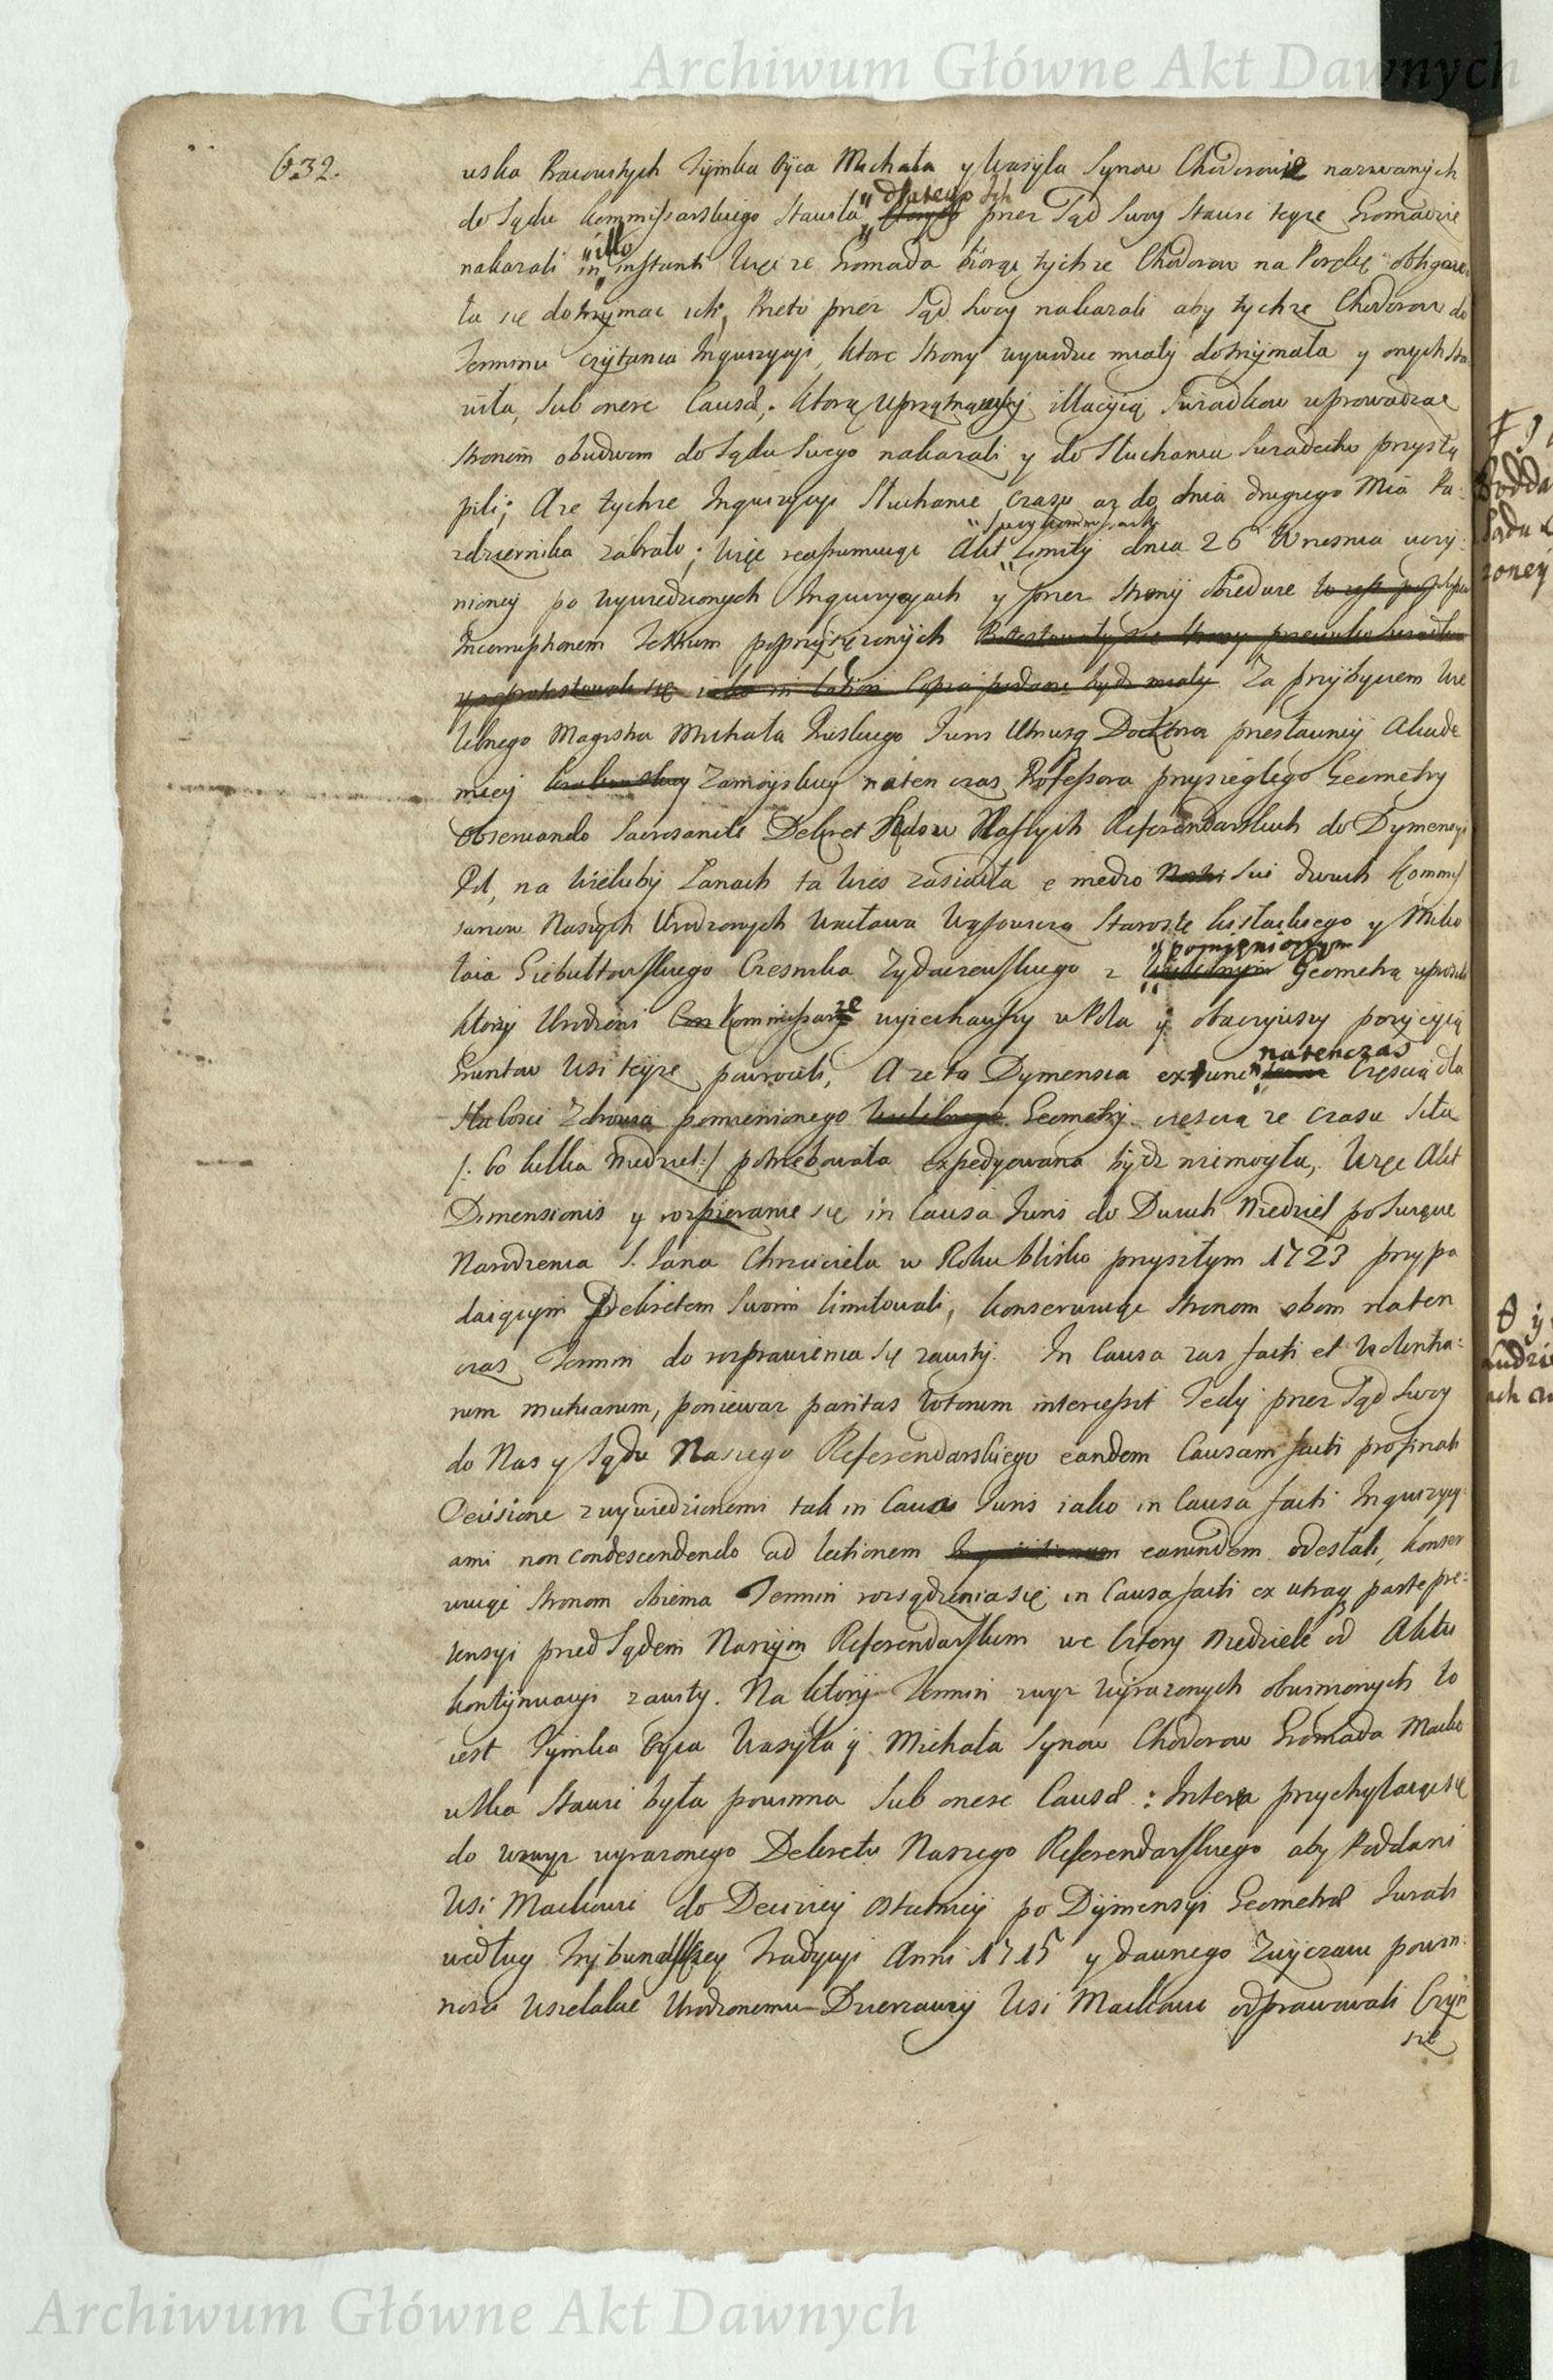 Archiwum Główne Akt Dawnych
632.
uska Racoustych Tymka Oyca Michała y Wasyla Synow Chodorowie nazwanych
dlatego tych
do Sądu Kommissarskiego Stawiła przez Sąd Swoy Stawic teyze Gromadzie
illo
nakazali in instanti Więc ze Gromada biorąc tychze Chodorow na Porękę obligowa
ła się dotrzymac ich, Przeto przez Sąd Swoy nakazali aby tychze Chodorow do
Terminu czytania Inquizycyi, ktore Strony wywodzic miały dotrzymała y onych sta
wiła, sub onere Causæ; ktorą uprzątnąwszy illacyią Swiadkow wprowadzac
Stronom obudwom do Sądu Swego nakazali y do Słuchania Swiadectw przystą
pili; A ze tychze Inquizycyi Słuchanie czasu az do dnia drugiego Mca Pa:
Swey Kommissarski
zdziernika zabrało; Więc reassumuiąc Akt Limity dnia 26 Wrzesnia uczy:
nioney po wywiedzionych Inquizycyach y przez Strony obiedwie
Incorruptionem Testium poprzysięzonych
Za przybyciem Wie
lebnego Magistra Michała Juris Utriusq Doktora przesławney Akade
miey Zamoyskiey naten czas Professora przysięgłego Geometry
observando Sacrosancte Dekret Sądow Naszych Referendarskich do Dymensyi
Pol, na wieluby Łanach ta Wies zasiadła e medio Sui dwuch Kommis
sarzow Naszych Urodzonych Wacława Wąsowicza Staroste y Miko
pomienionym
łaia Giebułtowskiego Czesnika Zydaczewskiego z Geometrą
ktorzy Urodzeni Kommissarze wyiechawszy w Pola y obaczywszy pozycyią
natenczas
Gruntow Wsi teyze powrocili, A ze ta Dymensia extunc Częscią dla
Słabosci Zdrowia pomienionego Geometry częscią ze czasu siła
/: bo kilka Niedziel :/ potrzebowała expedyowana bydz niemogła, Więc Akt
Dimensionis y rozpieranie się in Causa Juris do Dwuch Niedziel po Swięcie
Narodzenia S. Jana Chrzciciela w Roku blisko przyszłym 1723 przypa
daiącym Dekretem Swoim limitowali, konserwuiąc Stronom obom naten
czas Termin do rozprawienia się zawity. In Causa zas facti et Violentia:
rum mutuarum, poniewaz paritas Votorum intercessit Tedy przez Sąd Swoy
do Nas y Sądu Naszego Referendarskiego eandem Causam facti pro finali
Decisione z wywiedzionemi tak in Causa Juris iako in Causa facti Inquizycy:
ami non condescendendo ad lectionem earundem odesłali, konser
wuiąc Stronom obiema Termin rozsądzenia się in Causa facti ex utraq parte pre:
tensyi przed Sądem Naszym Referendarskim we cztery Niedziele od Aktu
kontynuacyi zawity. Na ktory Termin zwyz wyrazonych obwinionych to
iest Tymka Oyca Wasyla y Michała Synow Chodorow Gromada Macko
wska Stawic była powinna sub onere Causæ: Interea przychylaiąc się
do wzwyz wyrazonego Dekretu Naszego Referendarskiego aby Poddani
Wsi Mackowic do Decizyey ostatniey po Dymensyi Geometræ Jurati
według Trybunalskiey Tradycyi Anni 1715 y dawnego Zwyczaiu powin:
nosci wszelakie Urodzonemu Dzierzawcy Wsi Mackowic odprawowali Czyn
sze
Archiwum Główne Akt Dawnych